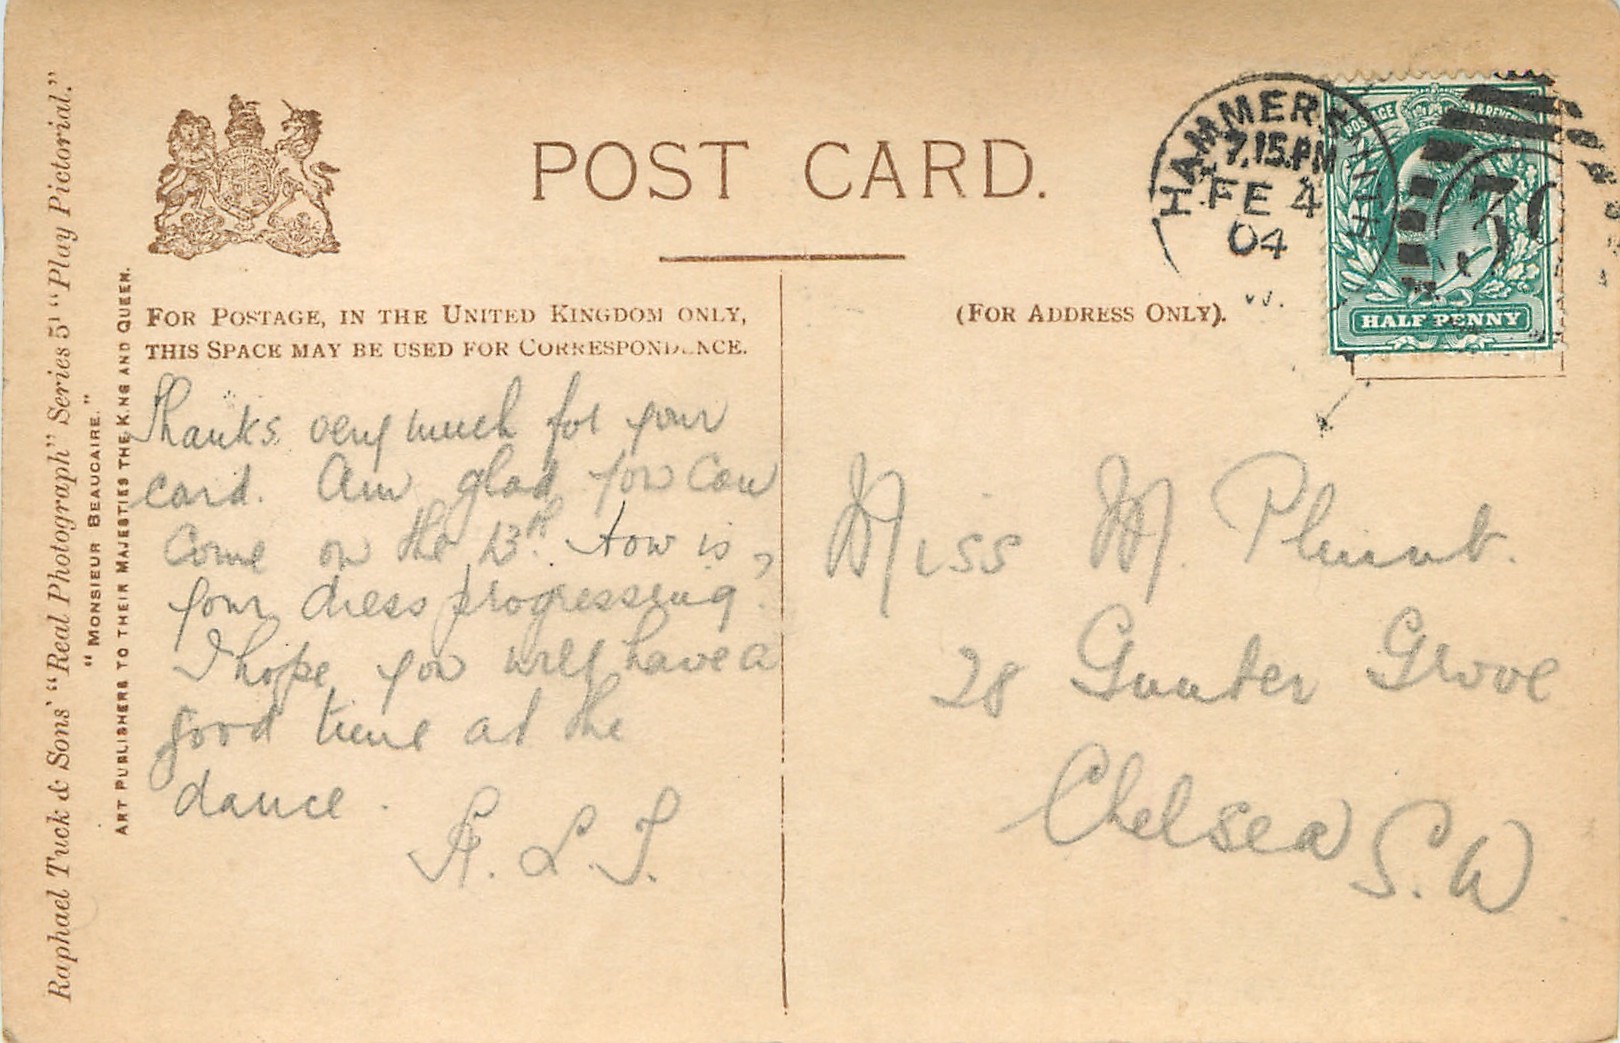 Raphael Tuck & Sons' "Real Photograph" Series 51 "Play Pictorial."
"MONSIEUR BEAUCAIRE."
ART PUBLISHERS TO THEIR MAJESTIES THE KING AND QUEEN.
POST CARD.
FOR POSTAGE, IN THE UNITED KINGDOM ONLY,
THIS SPACE MAY BE USED FOR CORRESPONDENCE.
(FOR ADDRESS ONLY).
HAMMERSMITH
7.15.PM
FE 4
04
W.
POSTAGE & REVENUE
HALF PENNY
Thanks very much for your
card. Am glad you can
come on the 13th. How is
your dress progressing?
I hope you will have a
good time at the
dance.
A. L. T.
Miss M.
28 Gunter Grove
Chelsea S.W